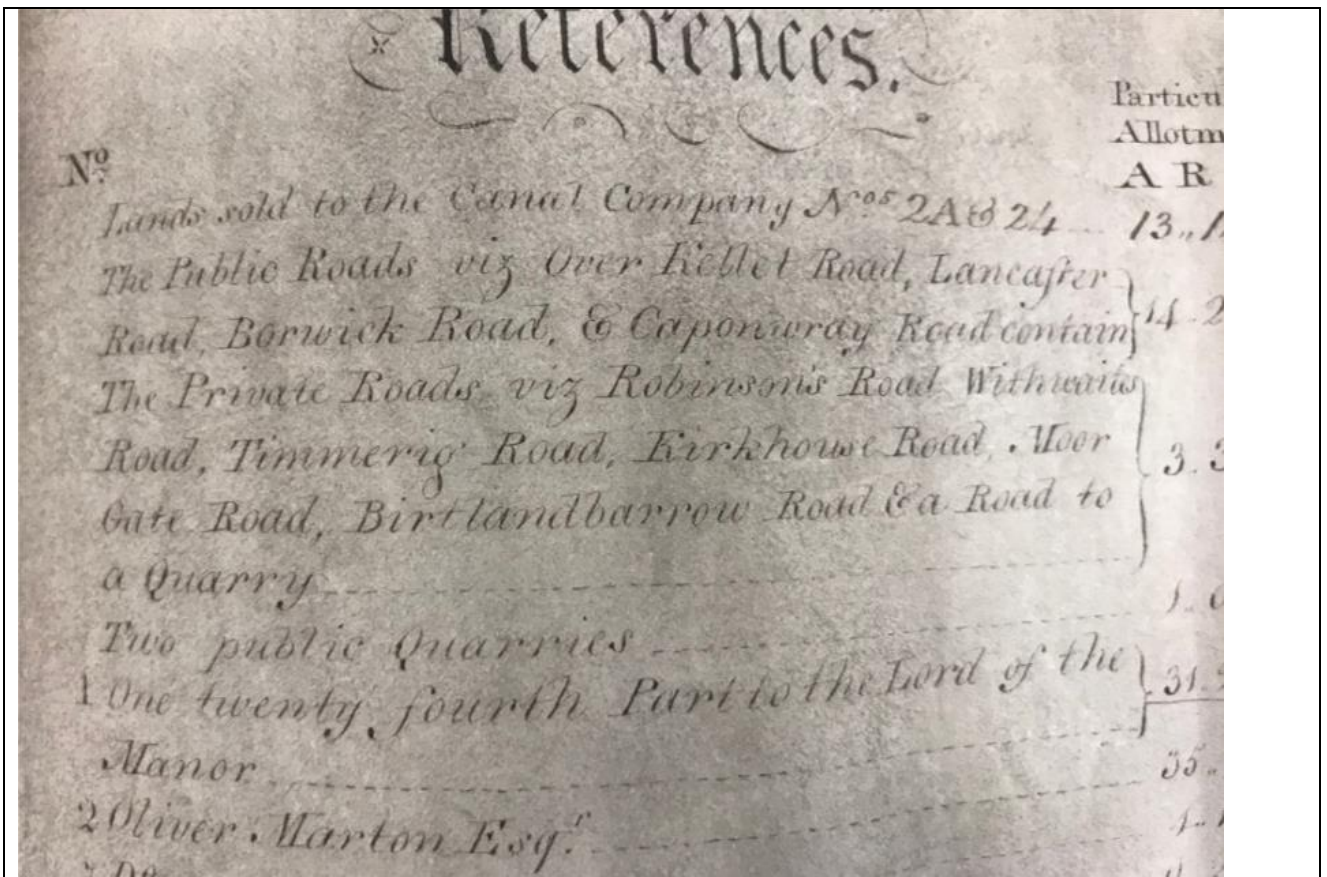 References.
Particu
Allotm
A R
No
Lands sold to the Canal Company Nos 2A & 24 13,,1
The Public Roads viz Over Kellet Road, Lancaster
Road, Borwick Road, & Caponwray Road contain 14-2
The Private Roads viz Robinson's Road Withwaits
Road, Timmerig Road, Kirkhouse Road, Moor 3-3
Gate Road, Birtlandbarrow Road & a Road to
a Quarry
Two public Quarries 1,,0
1 One twenty fourth Part to the Lord of the 31
Manor 35,,
2 Oliver Marton Esqr.
Do